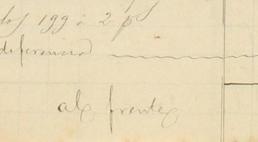 los 199 à 2 ps
diferencia
al frente